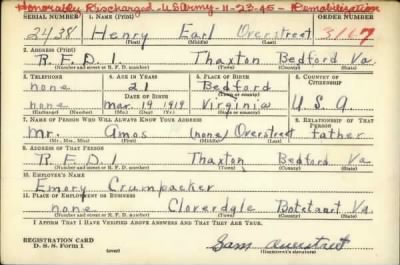 Honorably Discharged - U.S. Army - 11-23-45 - Demobilization
SERIAL NUMBER 1. NAME (Print) ORDER NUMBER
2438 Henry Earl Overstreet 3167
(First) (Middle) (Last)
2. ADDRESS (Print)
R.F.D. 1 Thaxton Bedford Va.
(Number and street or R. F. D. number) (Town) (County) (State)
3. TELEPHONE 4. AGE IN YEARS 5. PLACE OF BIRTH 6. COUNTRY OF CITIZENSHIP
none 21 Bedford
DATE OF BIRTH (Town or county)
none Mar. 19 1919 Virginia U.S.A.
(Exchange) (Number) (Mo.) (Day) (Yr.) (State or country)
7. NAME OF PERSON WHO WILL ALWAYS KNOW YOUR ADDRESS 8. RELATIONSHIP OF THAT PERSON
Mr. Amos (none) Overstreet father
(Mr., Mrs., Miss) (First) (Middle) (Last)
9. ADDRESS OF THAT PERSON
R.F.D. 1 Thaxton Bedford Va.
(Number and street or R. F. D. number) (Town) (County) (State)
10. EMPLOYER'S NAME
Emory Crumpacker
11. PLACE OF EMPLOYMENT OR BUSINESS
none Cloverdale Botetourt Va.
(Number and street or R. F. D. number) (Town) (County) (State)
I AFFIRM THAT I HAVE VERIFIED ABOVE ANSWERS AND THAT THEY ARE TRUE.
REGISTRATION CARD
D. S. S. Form 1 (over) Overstreet
(Registrant's signature)